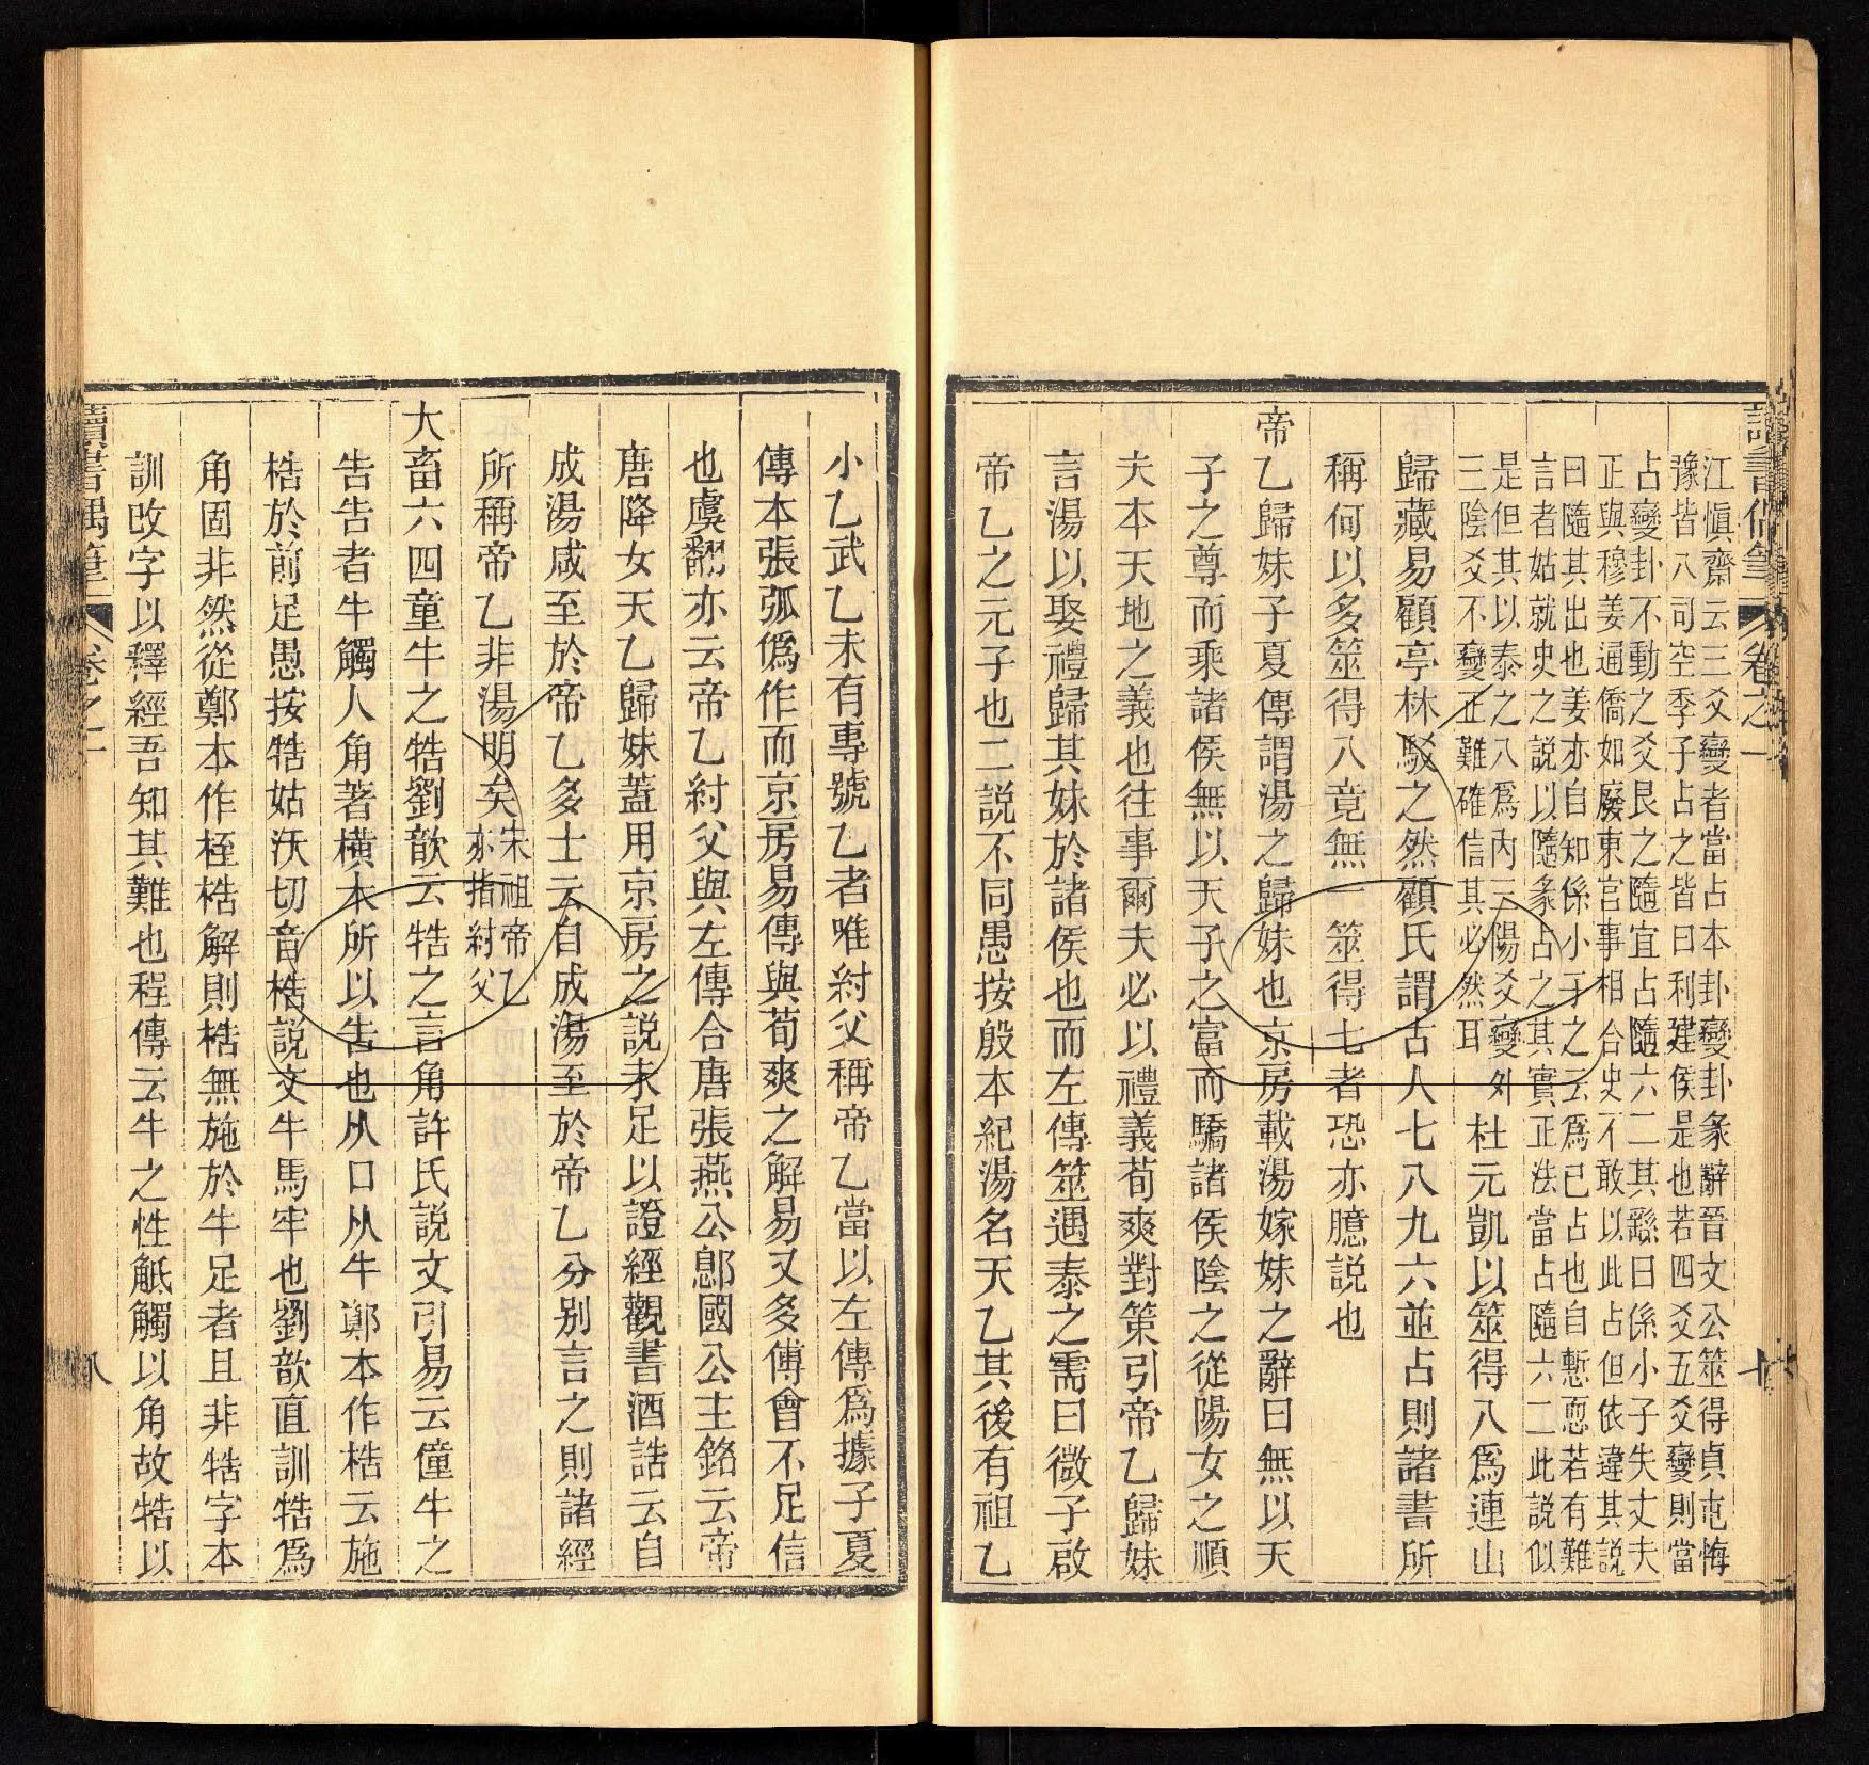 江慎齋云三爻變者當占本卦變卦彖辭晉文公筮得貞屯悔
豫皆八司空季子占之皆曰利建侯是也若四爻五爻變則當
占變卦不動之爻艮之隨宜占隨六二其繇曰係小子失丈夫
正與穆姜通僑如廢東宮事相合史不敢以此占但依違其説
曰隨其出也姜亦自知係小子之云爲已占也自慙恧若有難
言者姑就史之説以隨彖占之其實正法當占隨六二此説似
是但其以泰之八爲內三陽爻變外
三陰爻不變正難確信其必然耳
杜元凱以筮得八爲連山
歸藏易顧亭林駁之然顧氏謂古人七八九六並占則諸書所
稱何以多筮得八竟無一筮得七者恐亦臆説也
帝乙歸妹子夏傳謂湯之歸妹也京房載湯嫁妹之辭曰無以天
子之尊而乘諸侯無以天子之富而驕諸侯陰之從陽女之順
夫本天地之義也往事爾夫必以禮義荀爽對策引帝乙歸妹
言湯以娶禮歸其妹於諸侯也而左傳筮遇泰之需曰微子啟
帝乙之元子也二説不同愚按殷本紀湯名天乙其後有祖乙
讀書偶筆 卷之一
小乙武乙未有專號乙者唯紂父稱帝乙當以左傳爲據子夏
傳本張弧僞作而京房易傳與荀爽之解易又多傅會不足信
也虞翻亦云帝乙紂父與左傳合唐張燕公鄎國公主銘云帝
唐降女天乙歸妹蓋用京房之説未足以證經觀書酒誥云自
成湯咸至於帝乙多士云自成湯至於帝乙分别言之則諸經
所稱帝乙非湯明矣
朱祖帝乙
亦指紂父
大畜六四童牛之牿劉歆云牿之言角許氏説文引易云僮牛之
告告者牛觸人角著橫木所以告也从口从牛鄭本作梏云施
梏於前足愚按牿姑沃切音梏説文牛馬牢也劉歆直訓牿爲
角固非然從鄭本作桎梏解則梏無施於牛足者且非牿字本
訓改字以釋經吾知其難也程傳云牛之性觝觸以角故牿以
讀書偶筆 卷之一 八